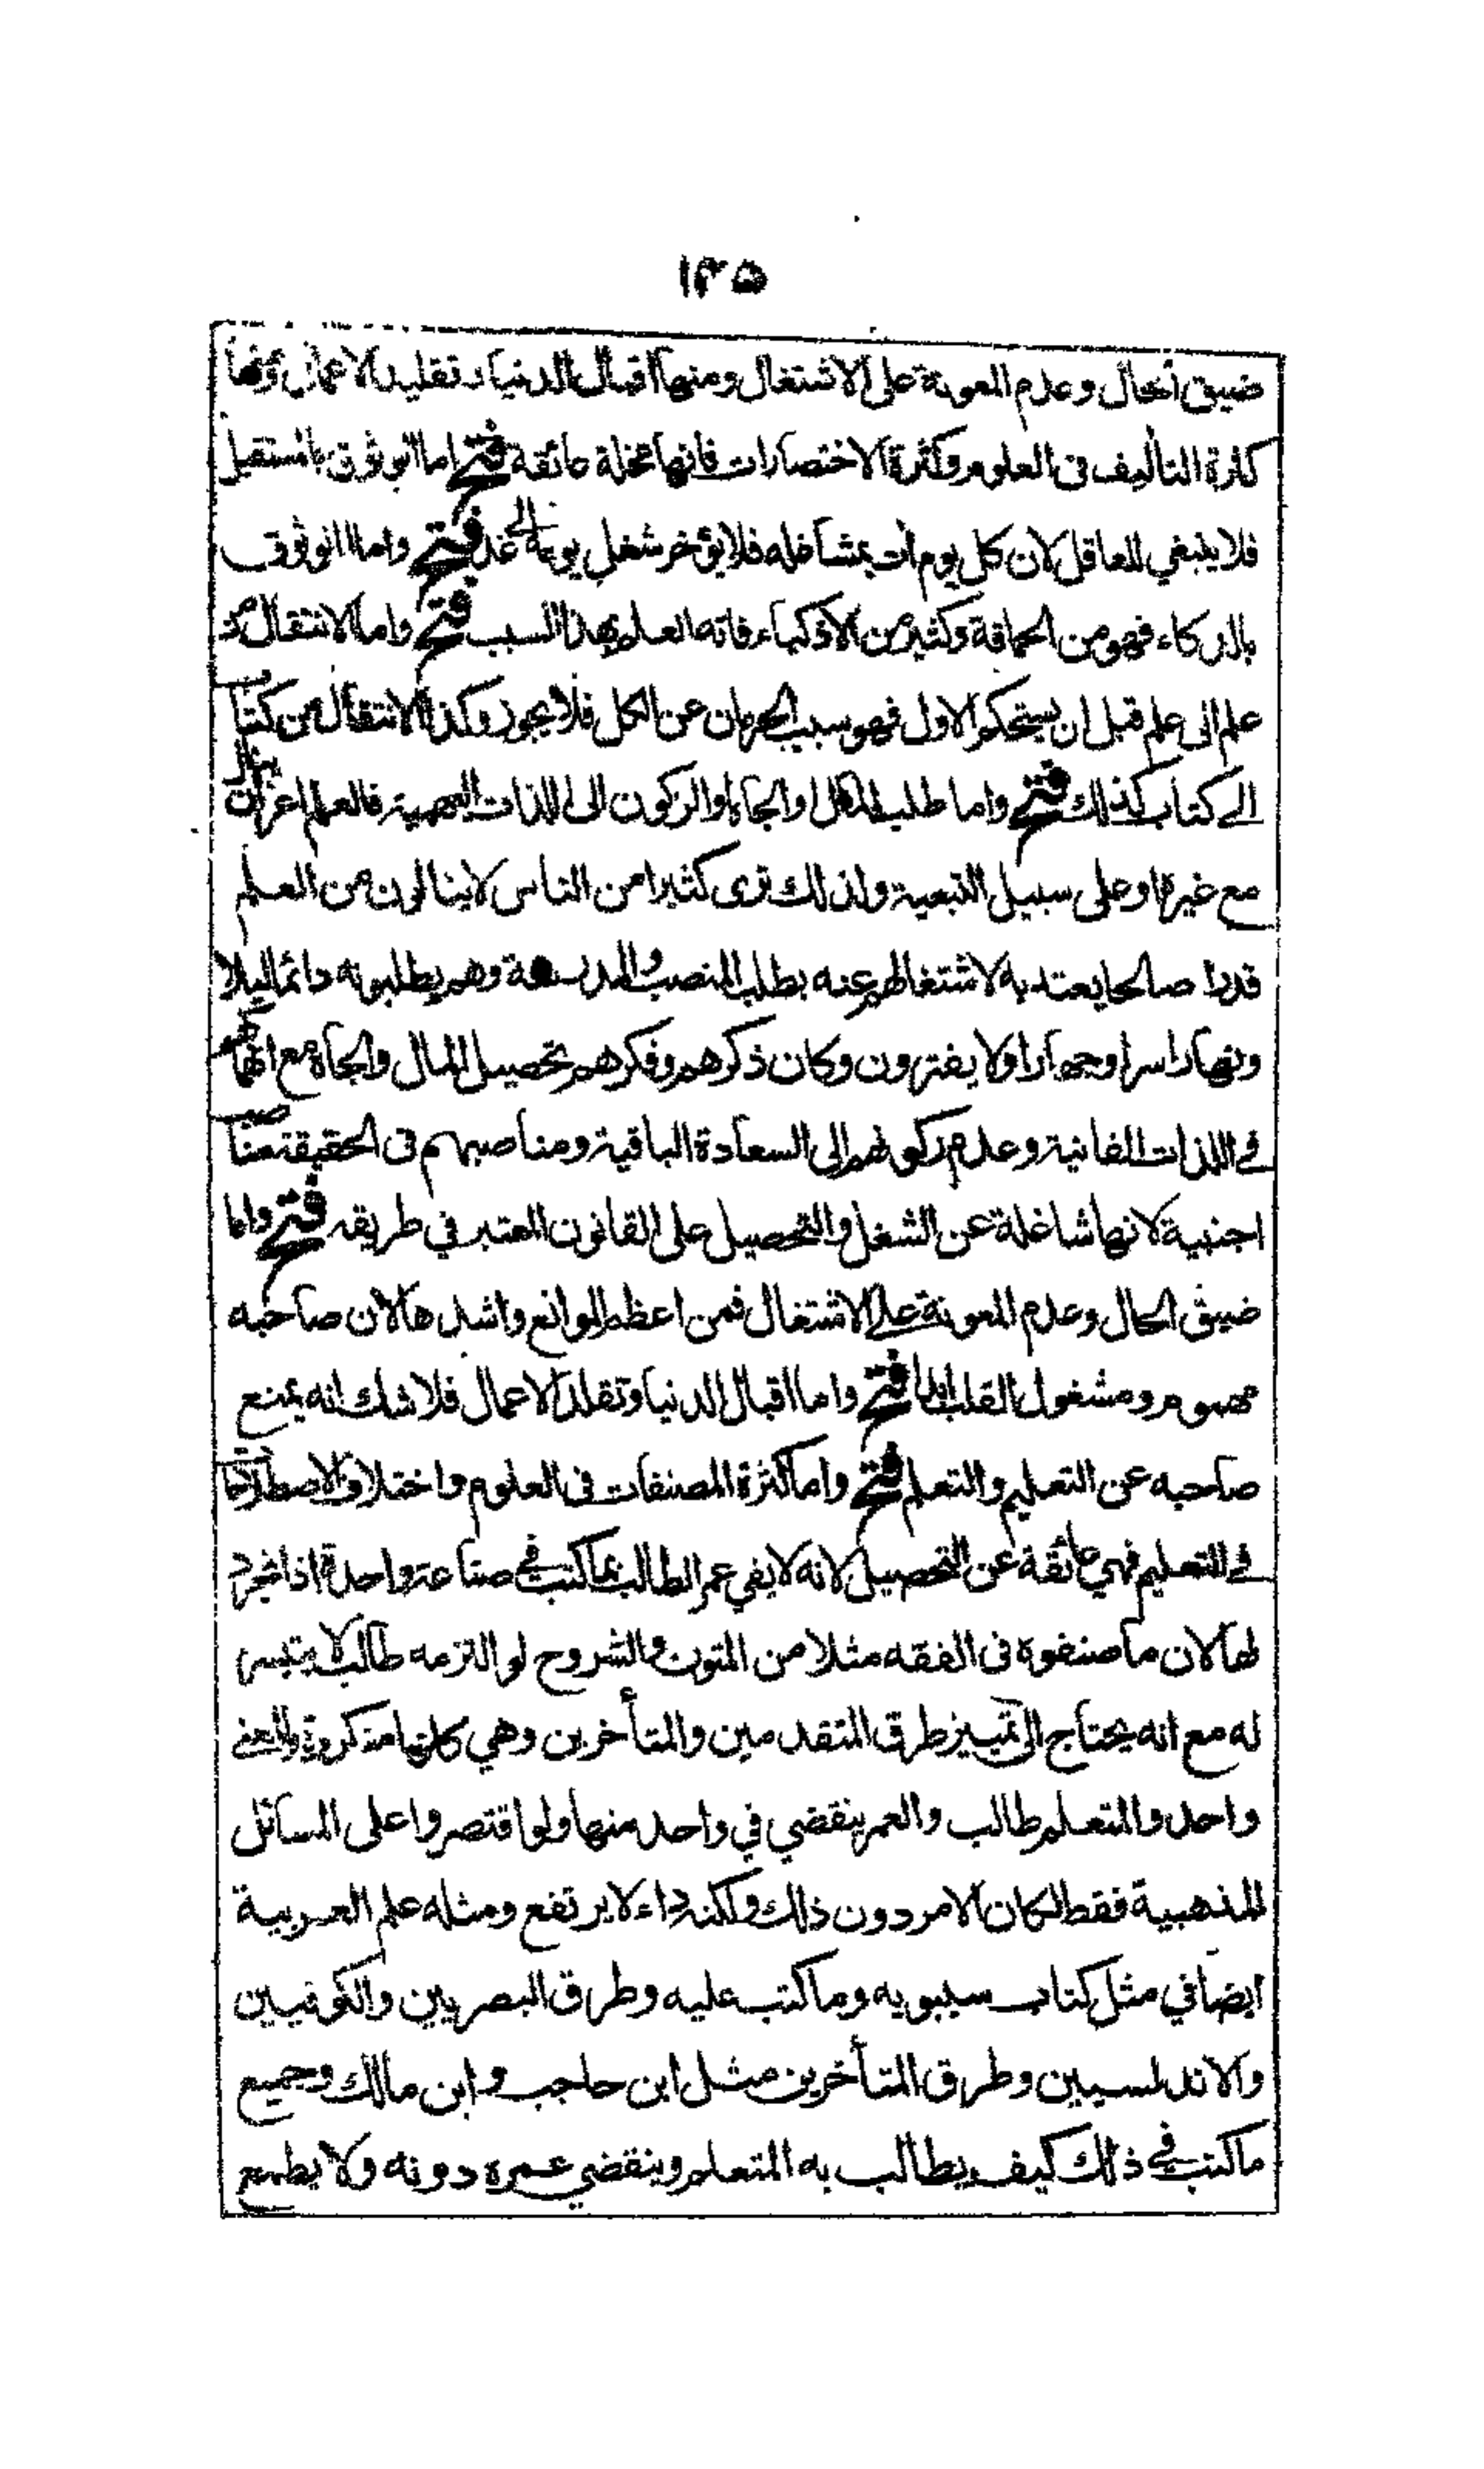 ١٣٥
ضيق الحال وعدم المعونة على الاشتغال ومنها اقبال الدنيا وتقليد الاعمال ومنها
كثرة التأليف فى العلوم وكثرة الاختصارات فانها مخلة عائقة فتح اما الوثوق بالمستقبل
فلا ينبغي للعاقل لان كل يوم آت بمشاغله فلا يؤخر شغل يومه الى غد فتح واما الوثوق
بالذكاء فهو من الحماقة وكثير من الاذكياء فاته العلم بهذا السبب فتح واما الانتقال من
علم الى علم قبل ان يستحكم الاول فهو سبب الحرمان عن الكل فلا يجوز وكذا الانتقال من كتاب
الى كتاب كذلك فتح واما طلب المال او الجاه او الركون الى اللذات البهيمية فالعلم اعز ان ينال
مع غيره او على سبيل التبعية ولذلك ترى كثيرا من الناس لا ينالون من العلم
قدرا صالحا يعتد به لاشتغالهم عنه بطلب المنصب والمدرسة وهم يطلبونه دائما ليلا
ونهارا سرا وجهارا ولا يفترون وكان ذكرهم وفكرهم تحصيل المال والجاه مع انهماكهم
فى اللذات الفانية وعدم ركونهم الى السعادة الباقية ومناصبهم فى الحقيقة مناصب
اجنبية لانها شاغلة عن الشغل والتحصيل على القانون المعتبر في طريقه فتح واما
ضيق الحال وعدم المعونة على الاشتغال فمن اعظم الموانع واشدها لان صاحبه
مهموم ومشغول القلب ابدا فتح واما اقبال الدنيا وتقلد الاعمال فلا شك انه يمنع
صاحبه عن التعليم والتعلم فتح واما كثرة المصنفات فى العلوم واختلاف الاصطلاحات
فى التعليم فهي عائقة عن التحصيل لانه لا يفي عمر الطالب بما كتب فى صناعة واحدة اذا تجرد
لها لان ما صنفوه فى الفقه مثلا من المتون والشروح لو التزمه طالب لا يتيسر
له مع انه يحتاج الى تمييز طرق المتقدمين والمتأخرين وهي كلها متكررة والمعنى
واحد والمتعلم طالب والعمر ينقضي في واحد منها ولو اقتصروا على المسائل
المذهبية فقط لكان الامر دون ذلك ولكنه داء لا يرتفع ومثله علم العربية
ايضا في مثل كتاب سيبويه وما كتب عليه وطرق البصريين والكوفيين
والاندلسيين وطرق المتأخرين مثل ابن حاجب وابن مالك وجميع
ما كتب فى ذلك كيف يطالب به المتعلم وينقضي عمره دونه ولا يطمع